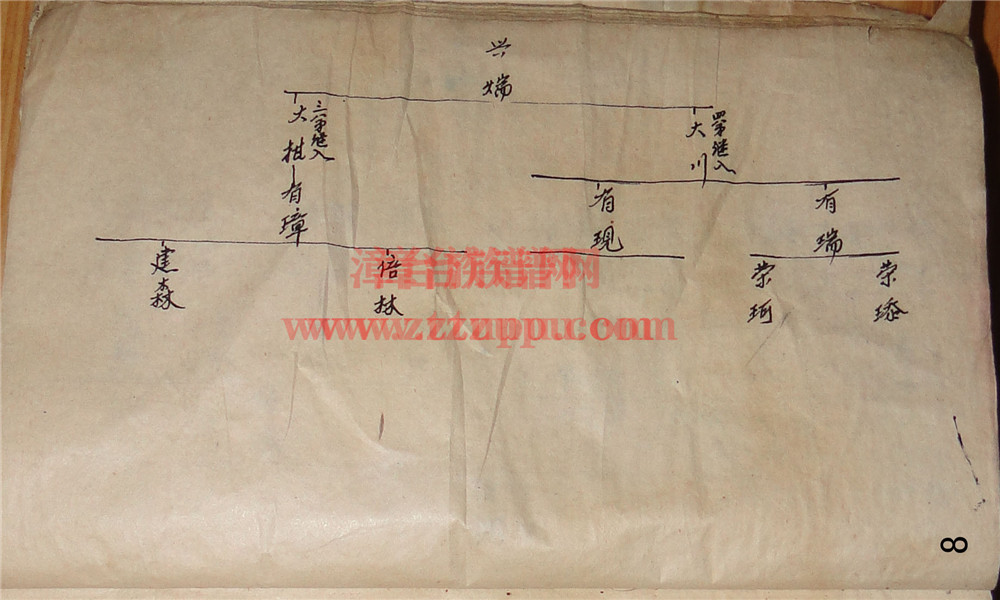 兴端
大川
四弟继入
大柑
三弟继入
有瑞
有现
有璋
荣琋
荣珂
倍林
建森
漳台族谱网
www.zzzupu.com
8